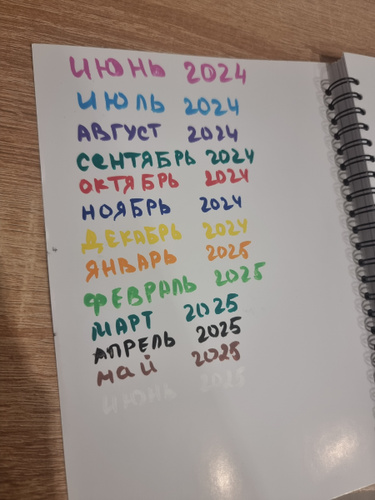 ИЮНЬ 2024
ИЮЛЬ 2024
АВГУСТ 2024
СЕНТЯБРЬ 2024
ОКТЯБРЬ 2024
НОЯБРЬ 2024
ДЕКАБРЬ 2024
ЯНВАРЬ 2025
ФЕВРАЛЬ 2025
МАРТ 2025
АПРЕЛЬ 2025
МАЙ 2025
ИЮНЬ 2025